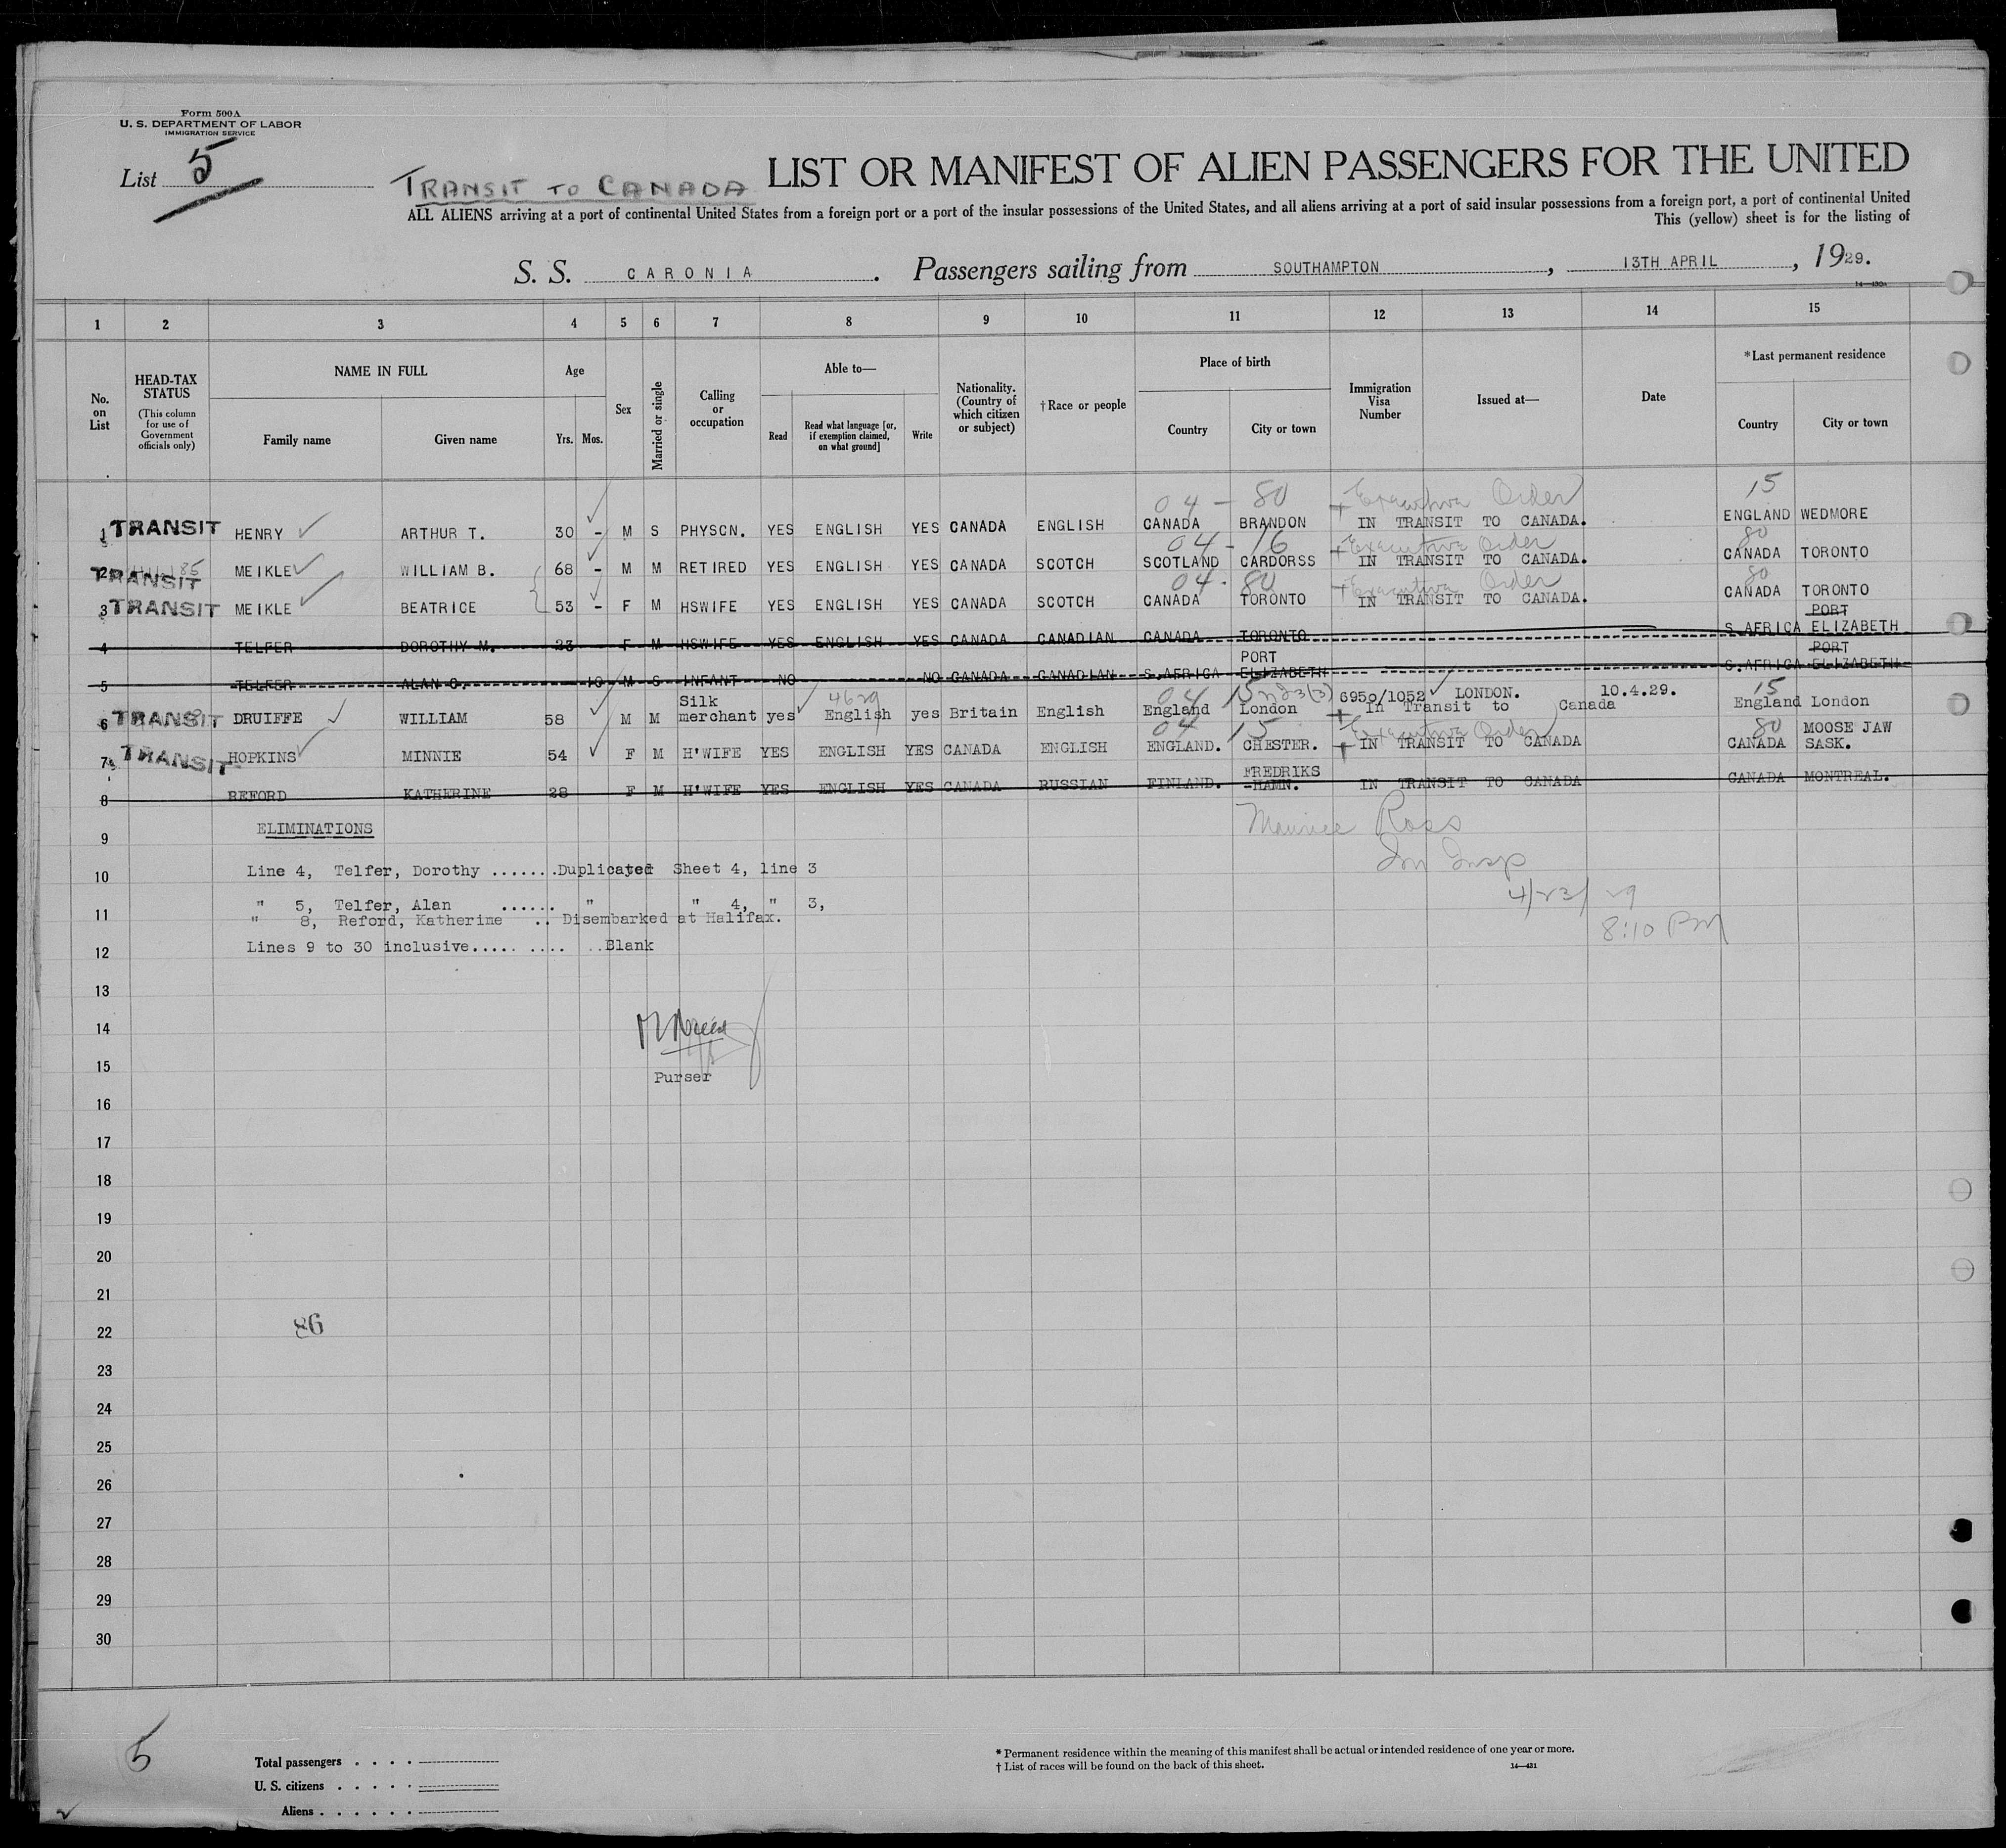 Form 500A
U. S. DEPARTMENT OF LABOR
IMMIGRATION SERVICE
List 5
TRANSIT TO CANADA LIST OR MANIFEST OF ALIEN PASSENGERS FOR THE UNITED
ALL ALIENS arriving at a port of continental United States from a foreign port or a port of the insular possessions of the United States, and all aliens arriving at a port of said insular possessions from a foreign port, a port of continental United
This (yellow) sheet is for the listing of
S. S. CARONIA. Passengers sailing from SOUTHAMPTON, 13TH APRIL, 1929.
1 2 3 4 5 6 7 8 9 10 11 12 13 14 15
No. on List
HEAD-TAX STATUS
(This column for use of Government officials only)
NAME IN FULL
Family name Given name
Age
Yrs. Mos.
Sex
Married or single
Calling or occupation
Able to—
Read
Read what language [or, if exemption claimed, on what ground]
Write
Nationality. (Country of which citizen or subject)
†Race or people
Place of birth
Country City or town
Immigration Visa Number
Issued at—
Date
*Last permanent residence
Country City or town
04 - 80 + Executive Order 15
1 TRANSIT HENRY ARTHUR T. 30 - M S PHYSCN. YES ENGLISH YES CANADA ENGLISH CANADA BRANDON IN TRANSIT TO CANADA. ENGLAND WEDMORE
04 - 16 + Executive Order 80
TRANSIT MEIKLE WILLIAM B. 68 - M M RETIRED YES ENGLISH YES CANADA SCOTCH SCOTLAND CARDORSS IN TRANSIT TO CANADA. CANADA TORONTO
04 - 80 + Executive Order 80
3 TRANSIT MEIKLE BEATRICE 53 - F M HSWIFE YES ENGLISH YES CANADA SCOTCH CANADA TORONTO IN TRANSIT TO CANADA. CANADA TORONTO
4 TELFER DOROTHY M. 23 F M HSWIFE YES ENGLISH YES CANADA CANADIAN CANADA TORONTO S.AFRICA PORT ELIZABETH
5 TELFER ALAN C. 10 M S INFANT NO NO CANADA CANADIAN S.AFRICA PORT ELIZABETH S.AFRICA PORT ELIZABETH
4629 04 15 15
6 TRANSIT DRUIFFE WILLIAM 58 M M Silk merchant yes English yes Britain English England London 6950/1052 LONDON. 10.4.29. England London
+ In Transit to Canada
04 15 Executive Order 80
7 TRANSIT HOPKINS MINNIE 54 F M H'WIFE YES ENGLISH YES CANADA ENGLISH ENGLAND. CHESTER. + IN TRANSIT TO CANADA CANADA MOOSE JAW SASK.
8 REFORD KATHERINE 28 F M H'WIFE YES ENGLISH YES CANADA RUSSIAN FINLAND. FREDRIKS -HAMN. IN TRANSIT TO CANADA CANADA MONTREAL.
9 ELIMINATIONS
Maurice Ross
10 Line 4, Telfer, Dorothy .......Duplicated Sheet 4, line 3
Im Insp
4/23/29
11 " 5, Telfer, Alan ...... " " 4, " 3,
" 8, Reford, Katherine .. Disembarked at Halifax.
8:10 PM
12 Lines 9 to 30 inclusive..... .... ..Blank
13
14
15
Purser
16
17
18
19
20
21
22
86
23
24
25
26
27
28
29
30
5
Total passengers . . . .
U. S. citizens . . . . .
Aliens . . . . . .
* Permanent residence within the meaning of this manifest shall be actual or intended residence of one year or more.
† List of races will be found on the back of this sheet.
14—431